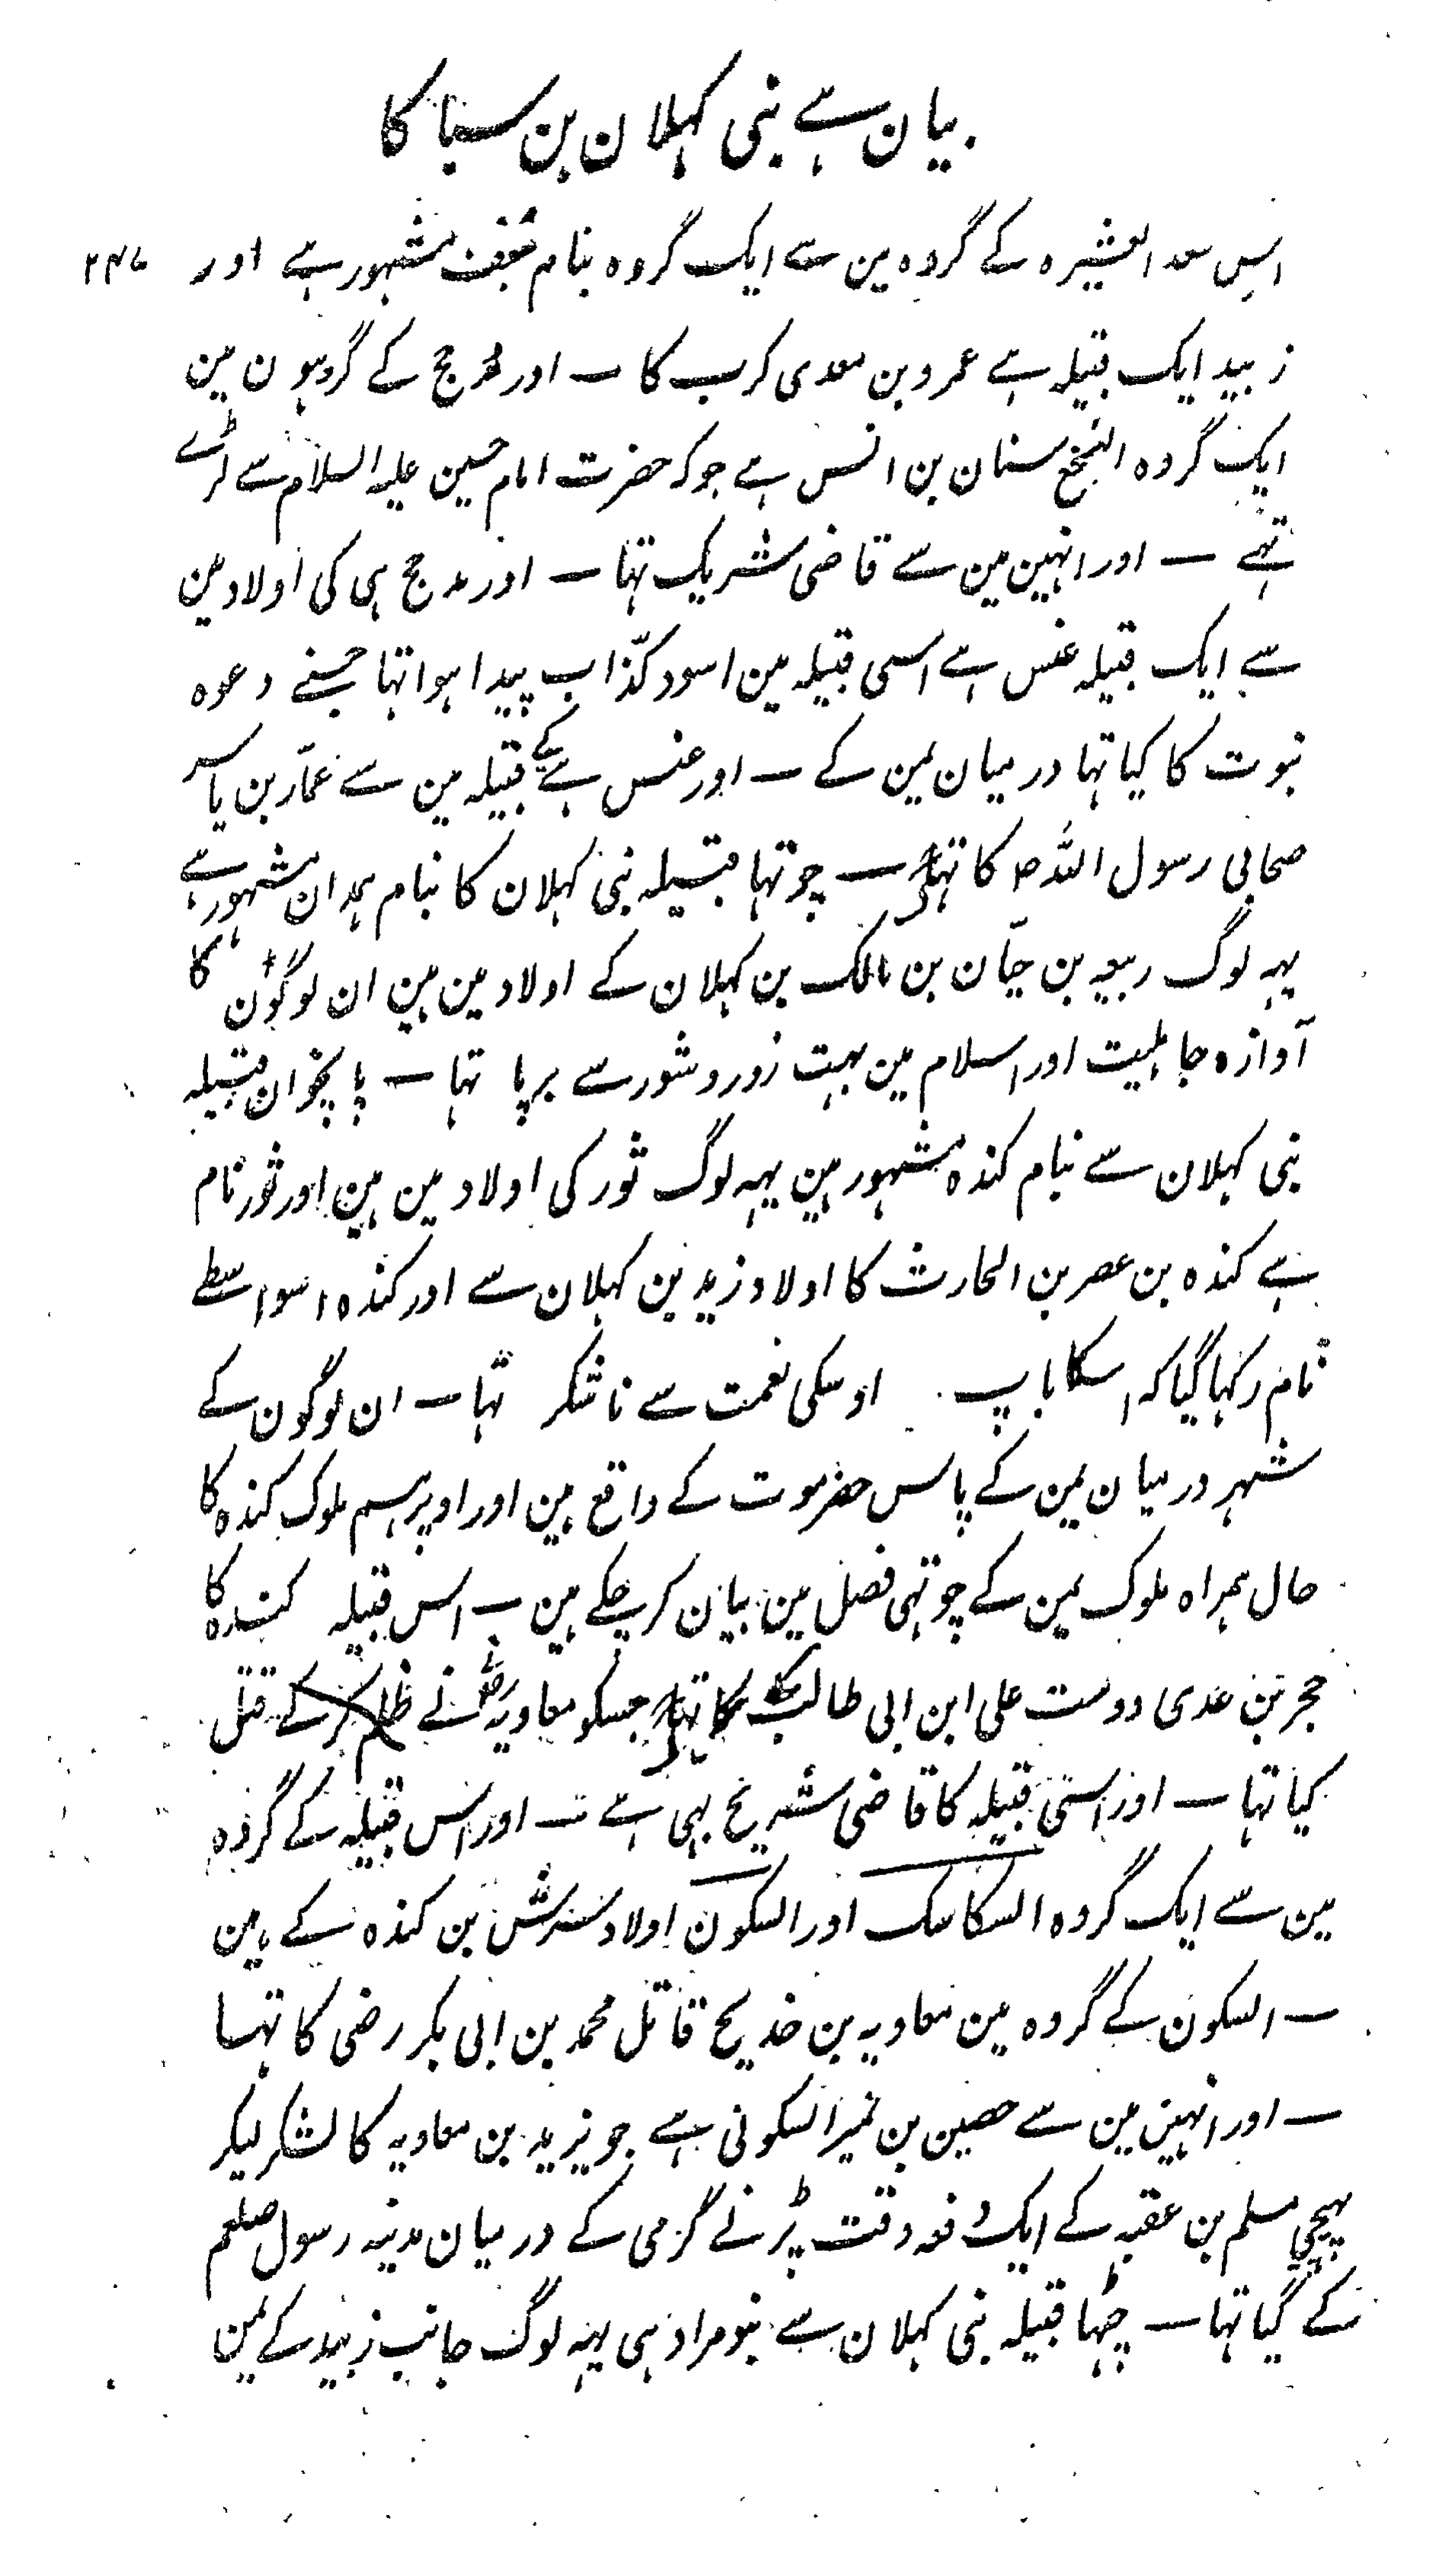 بیان ہے بنی کہلان بن سبا کا
۲۴۷
اس سعد العشیرہ کے گروہ مین سے ایک گروہ بنام مشہور ہے اور
زبید ایک قبیلہ ہے عمرو بن معدی کرب کا ـ اور مذحج کے گروہون مین
ایک گروہ النخع سنان بن انس ہے جو کہ حضرت امام حسین علیہ السلام سے لڑے
تہے ـ اور انہین مین سے قاضی شریک تہا ـ اور مذحج ہی کی اولاد مین
سے ایک قبیلہ عنس ہے اسی قبیلہ مین اسود کذّاب پیدا ہوا تہا جسنے دعوہ
نبوت کا کیا تہا درمیان یمن کے ـ اور عنس ہے کے قبیلہ مین سے عمّار بن یاسر
صحابی رسول اللہ ص کا تہا ـ چوتہا قبیلہ بنی کہلان کا بنام ہمدان مشہور ہے
یہہ لوگ ربیعہ بن حیّان بن مالک بن کہلان کے اولاد مین ہین ان لوگون کا
آوازہ جاہلیت اور اسلام مین بہت زور و شور سے برپا تہا ـ پانچوان قبیلہ
بنی کہلان سے بنام کندہ مشہور ہین یہہ لوگ ثور کی اولاد مین ہین اور ثور نام
ہے کندہ بن عصر بن الحارث کا اولاد زید بن کہلان سے اور کندہ اسواسطے
نام رکہا گیا کہ اسکا باپ اوسکی نعمت سے ناشکر تہا ـ ان لوگون کے
شہر درمیان یمن کے پاس حضرموت کے واقع ہین اور اوپر ہم ملوک کندہ کا
حال ہمراہ ملوک یمن کے چوتہی فصل مین بیان کر چکے ہین ـ اس قبیلہ کندہ کا
حجر بن عدی دوست علی ابن ابی طالب کا تہا جسکو معاویہ رض نے ظلم کر کے قتل
کیا تہا ـ اور اسی قبیلہ کا قاضی شریح بہی ہے ـ اور اس قبیلہ کے گروہ
مین سے ایک گروہ السکاسک اور السکون اولاد شرش بن کندہ کے ہین
ـ السکون کے گروہ مین معاویہ بن خدیج قاتل محمد بن ابی بکر رضی کا تہا
ـ اور انہین مین سے حصین بن نمیر السکونی ہے جو یزید بن معاویہ کا لشکر لیکر
پیچہے مسلم بن عقبہ کے ایک دفعہ وقت پڑنے گرمی کے درمیان مدینہ رسول صلعم
کے گیا تہا ـ چہٹا قبیلہ بنی کہلان سے بنو مراد ہی یہہ لوگ جانب زبید کے یمن